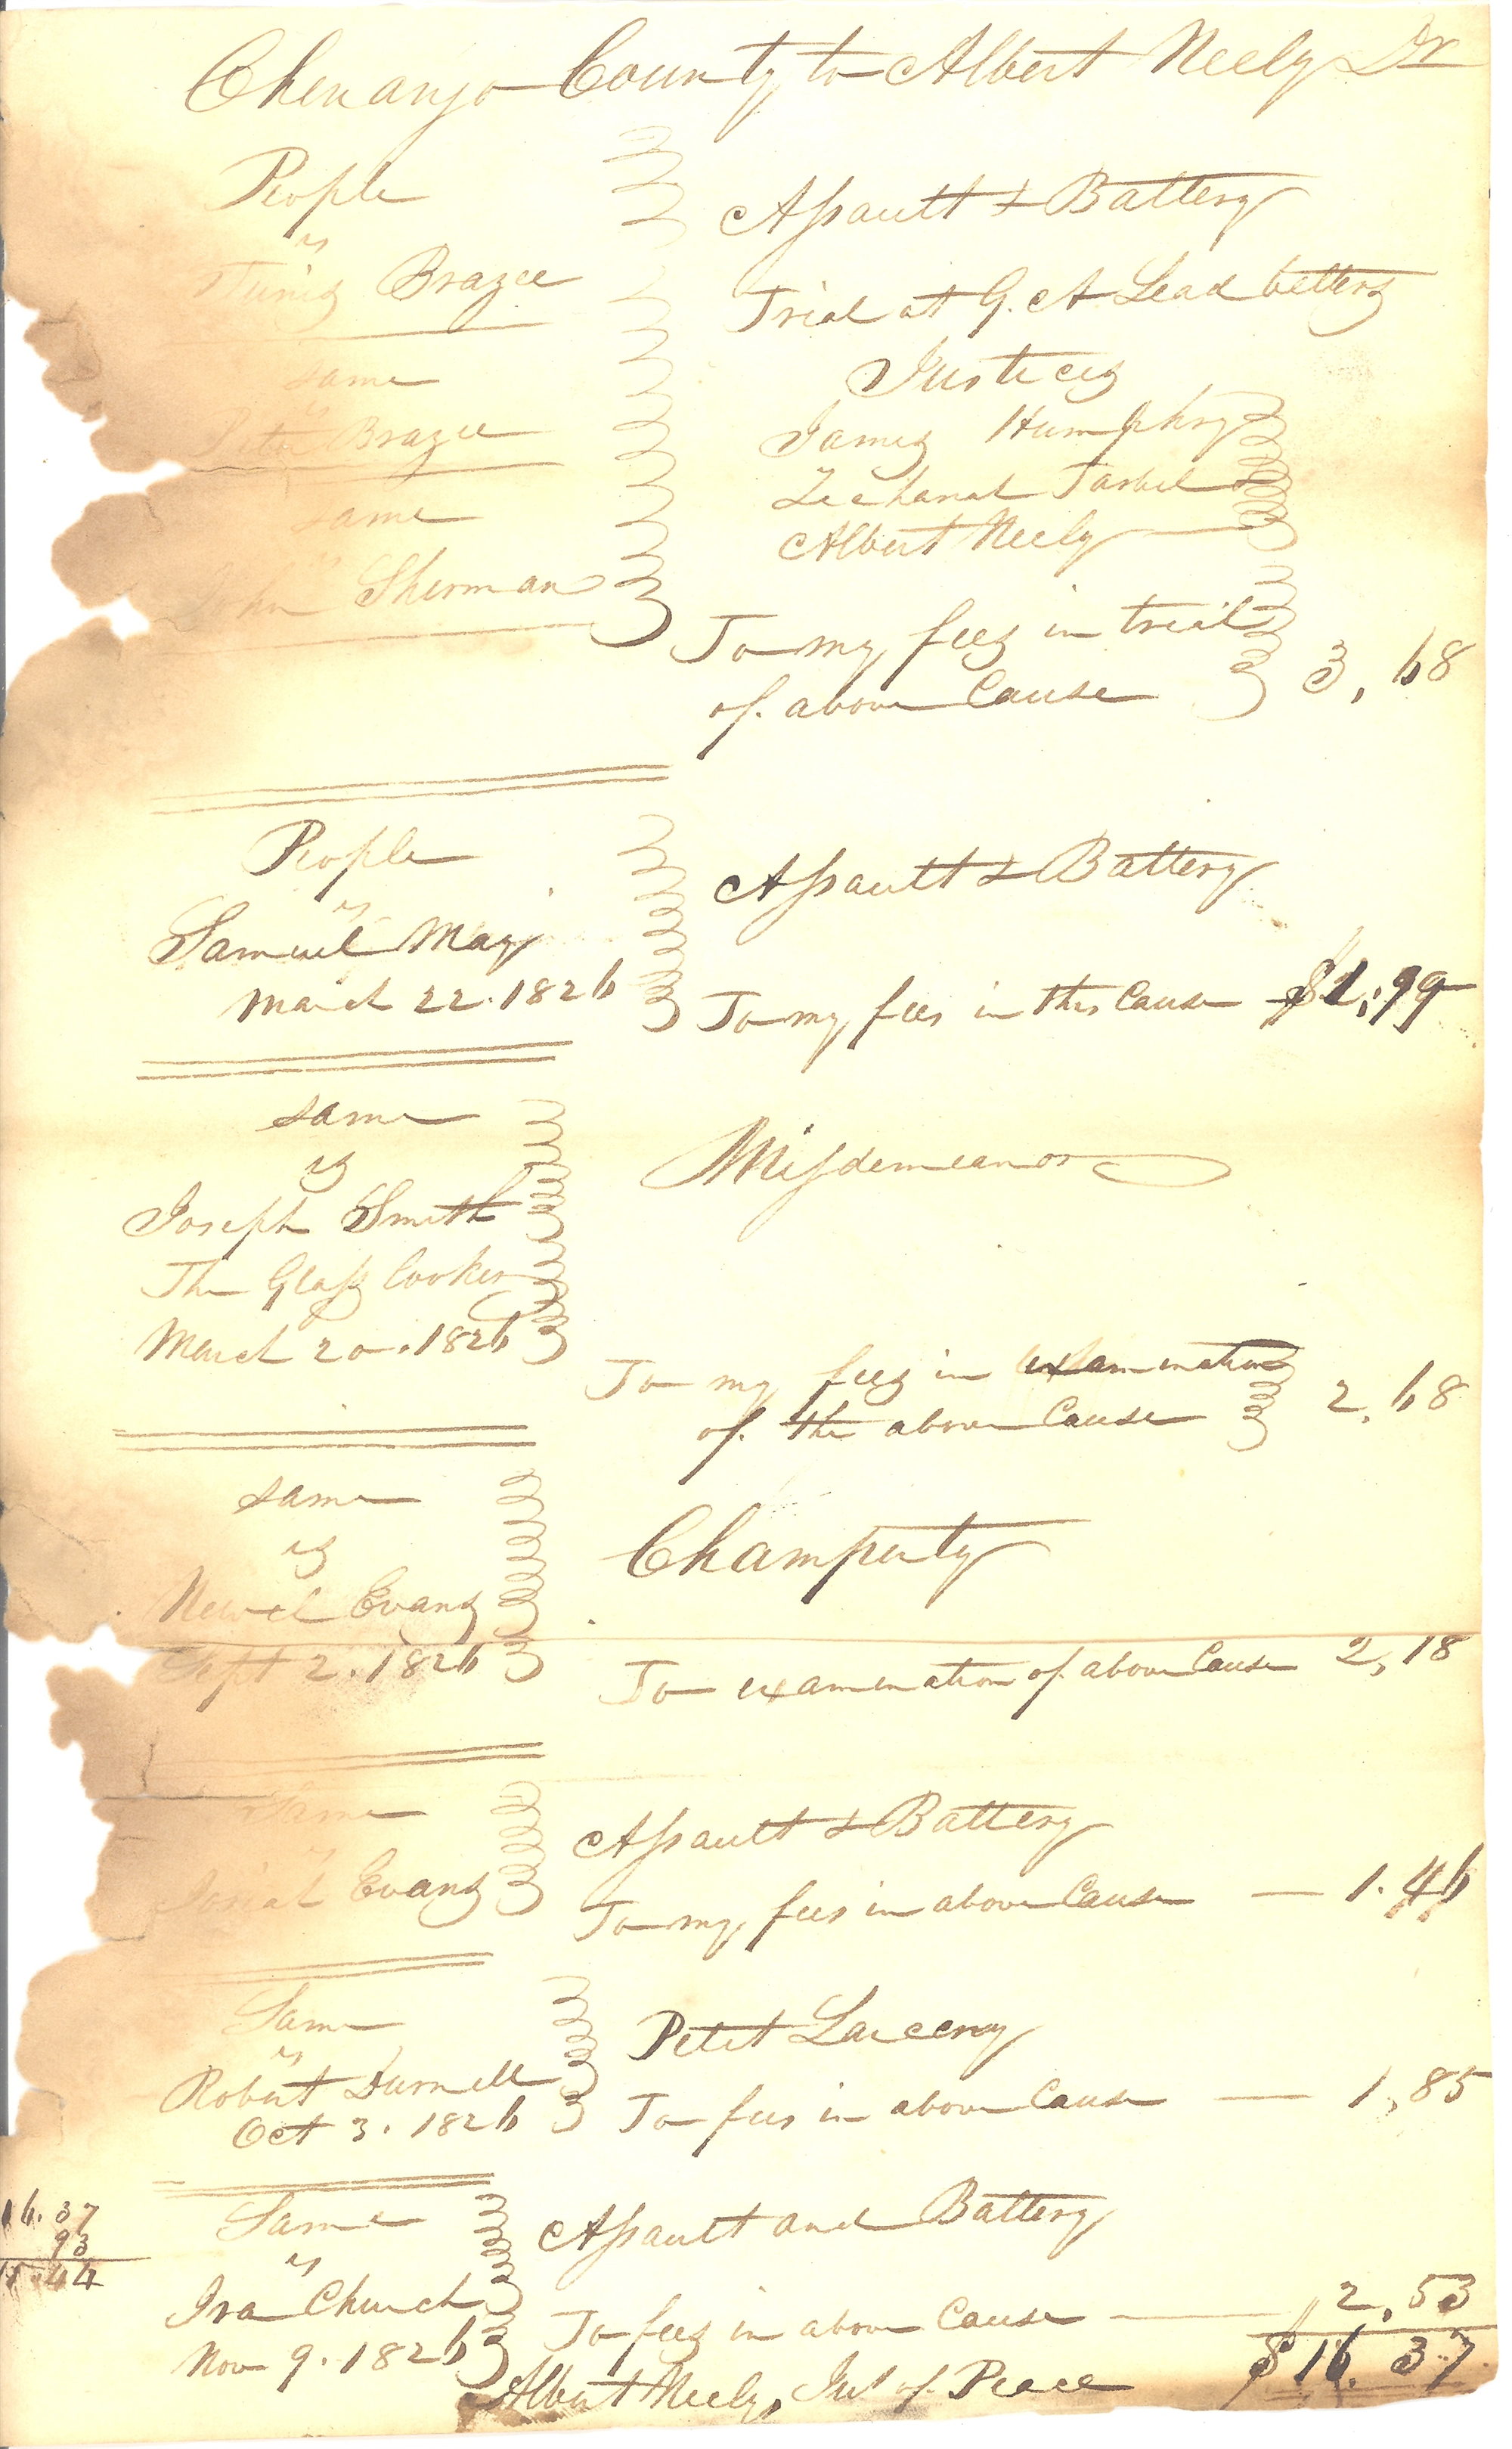 Chenango County to Albert Neely Dr
People
vs
Tunis Brazee
same
vs
Peter Brazee
same
vs
John Sherman
Assault & Battery
Trial at G. A Leadbetters
Justices
James Humphry
Zechariah Tarbel
Albert Neely
To my fees in trial
of above Cause 3, 68
People
vs
Samuel May
March 22. 1826
Assault & Battery
To my fees in this Cause $1,99
same
vs
Joseph Smith
The Glass looker
March 20. 1826
Misdemeanor
To my fees in examination
of the above Cause 2, 68
same
vs
Newel Evans
Sept 2. 1826
Champerty
To examination of above Cause 2, 18
Same
vs
Josiah Evans
Assault & Battery
To my fees in above Cause — 1. 46
Same
vs
Robert Durnell
Oct 3. 1826
Petit Larceny
To fees in above Cause — 1, 85
16. 37
93
15. 44
Same
vs
Ira Church
Nov 9. 1826
Assault and Battery
To fees in above Cause — 2, 53
$16. 37
Albert Neely, Jus of Peace